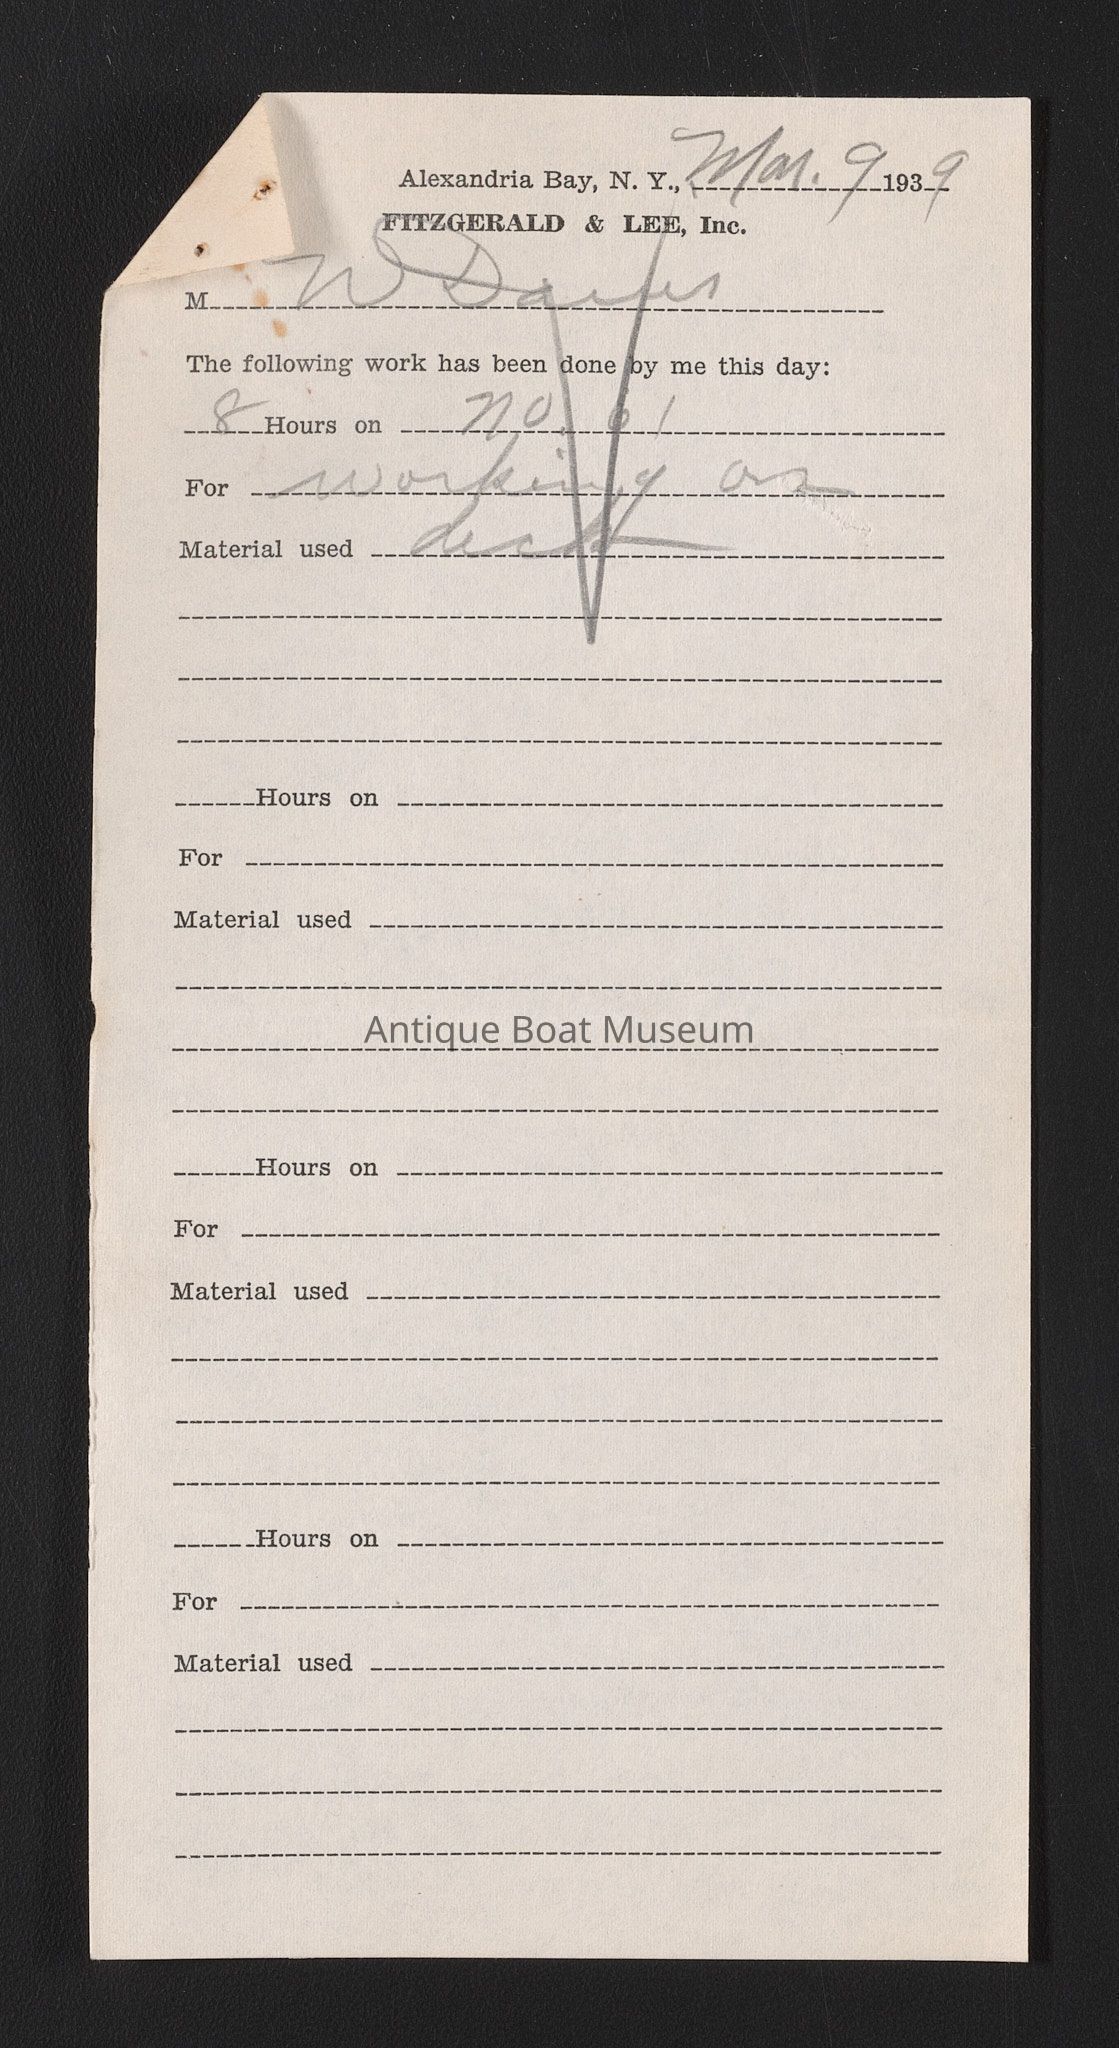 Alexandria Bay, N. Y., Mar. 9 1939
FITZGERALD & LEE, Inc.
M W Davis
The following work has been done by me this day:
8 Hours on no. 61
For working on
Material used deck
Hours on
For
Material used
Antique Boat Museum
Hours on
For
Material used
Hours on
For
Material used